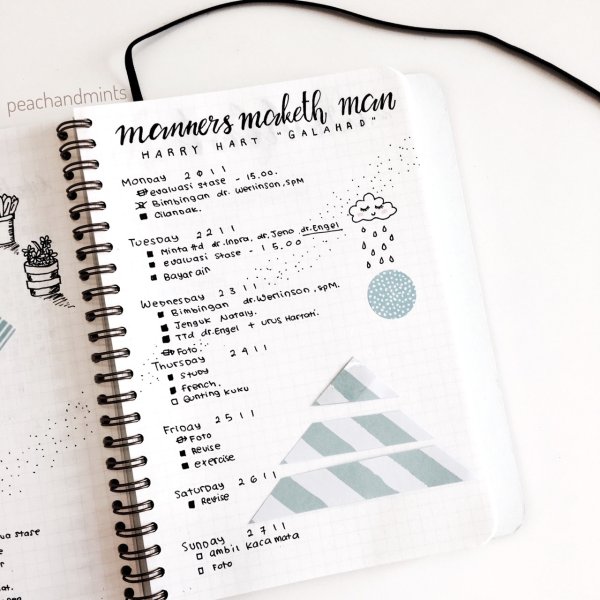 peachandmints
manners maketh man
HARRY HART "GALAHAD"
Monday 2011
evaluasi stase - 15.00.
Bimbingan dr. Werlinson, SpM
Cilandak.
Tuesday 2211
Minta ttd dr. Indra, dr. Jeno, dr. Engel
evaluasi stase - 15.00
Bayarain
Wednesday 2311
Bimbingan dr. Werlinson, SpM.
Jenguk Nataly.
TTd dr. Engel + urus Hartati.
Foto.
Thursday 2411
Study
French.
Gunting kuku
Friday 2511
Foto
Revise
exercise
Saturday 2611
Revise
Sunday 2711
ambil kacamata
Foto
ua stase